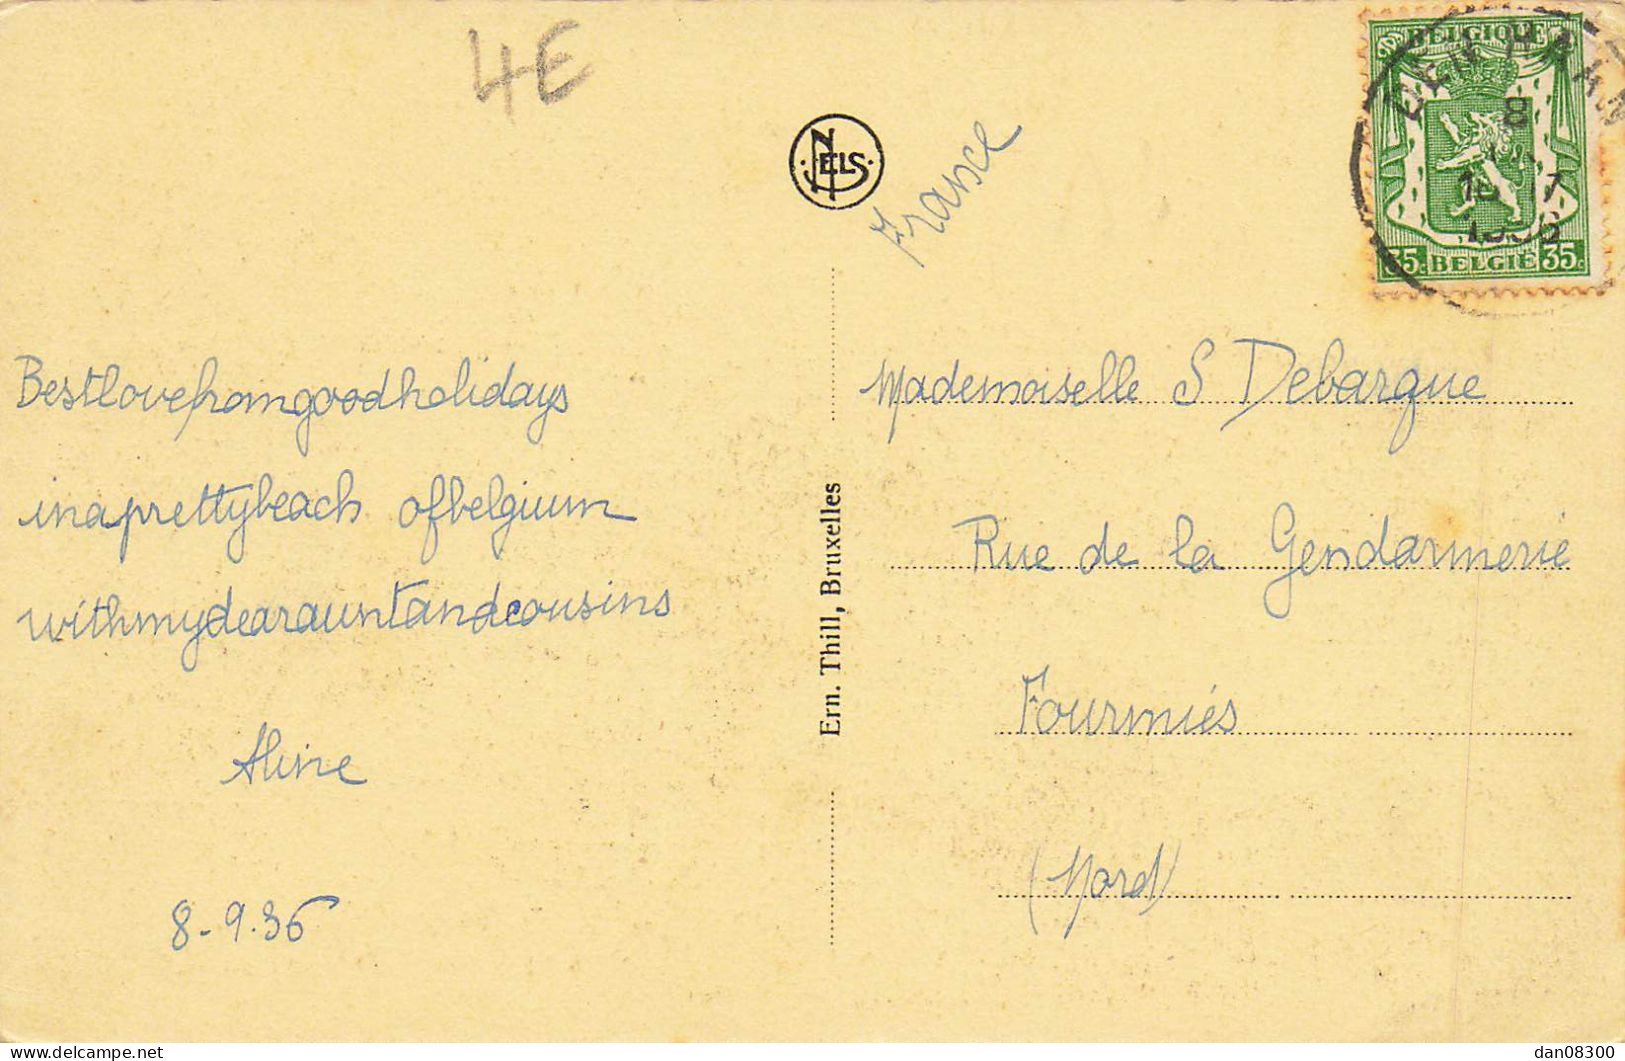 4E
NELS
France
BELGIQUE
DEN HAAN
8
1936
35c BELGIË 35c
Bestlovefromgoodholidays
inaprettybeach ofbelgium
withmydearauntandcousins
Aline
8-9.36
Ern. Thill, Bruxelles
Mademoiselle S Debarque
Rue de la Gendarmerie
Fourmiés
(Nord)
delcampe.net
dan08300